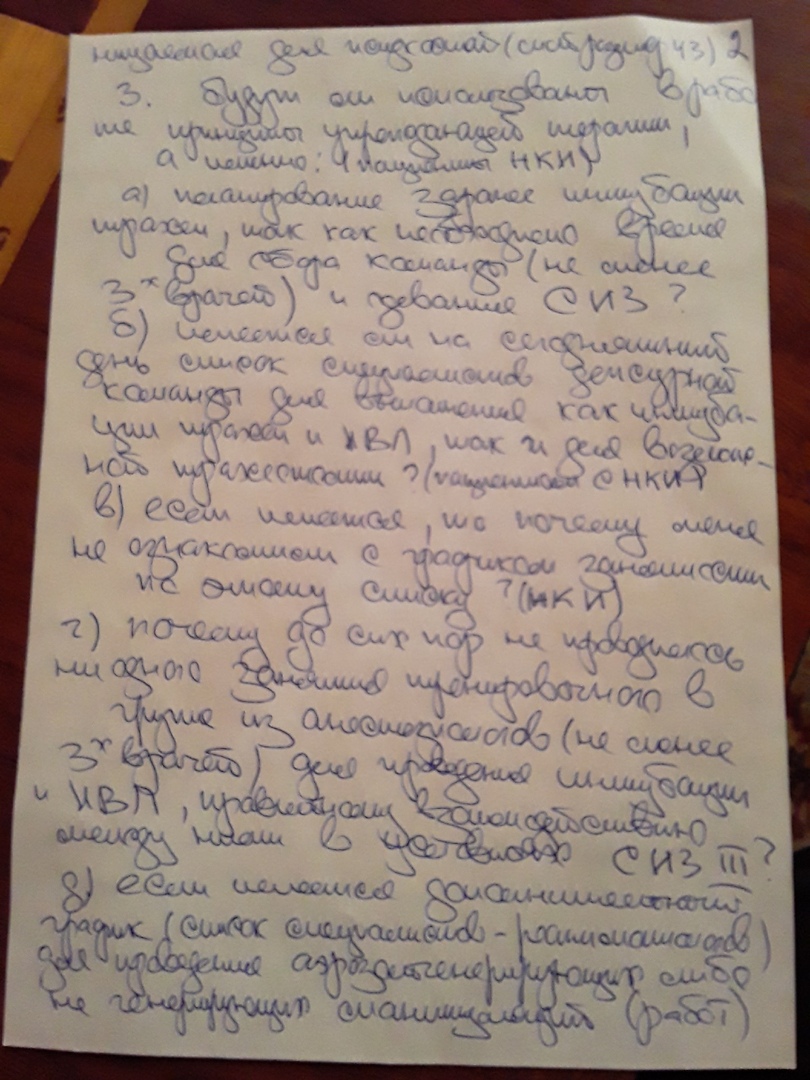 для (сист 43) 2
3. будут ли использованы в рабо
те принципы упреждающей терапии,
а именно: (пациенты НКИ)
а) планирование заранее интубации
трахеи, так как необходимо время
для сбора команды (не менее
3х врачей) и одевание СИЗ?
б) имеется ли на сегодняшний
день список специалистов дежурной
команды для выполнения как интуба-
ции трахеи и ИВЛ, так и для возмож-
ной трахеостомии? (пациентам с НКИ)
в) если имеется, то почему меня
не ознакомили с графиком
по этому списку? (НКИ)
г) почему до сих пор не проводилось
ни одного занятия тренировочного в
группе из анестезиологов (не менее
3х врачей) для проведения интубации
и ИВЛ, правильному взаимодействию
между ними в условиях СИЗ III?
д) если имеется дополнительный
график (список специалистов-реаниматологов)
для проведения аэрозольгенерирующих либо
не генерирующих манипуляций (работ)